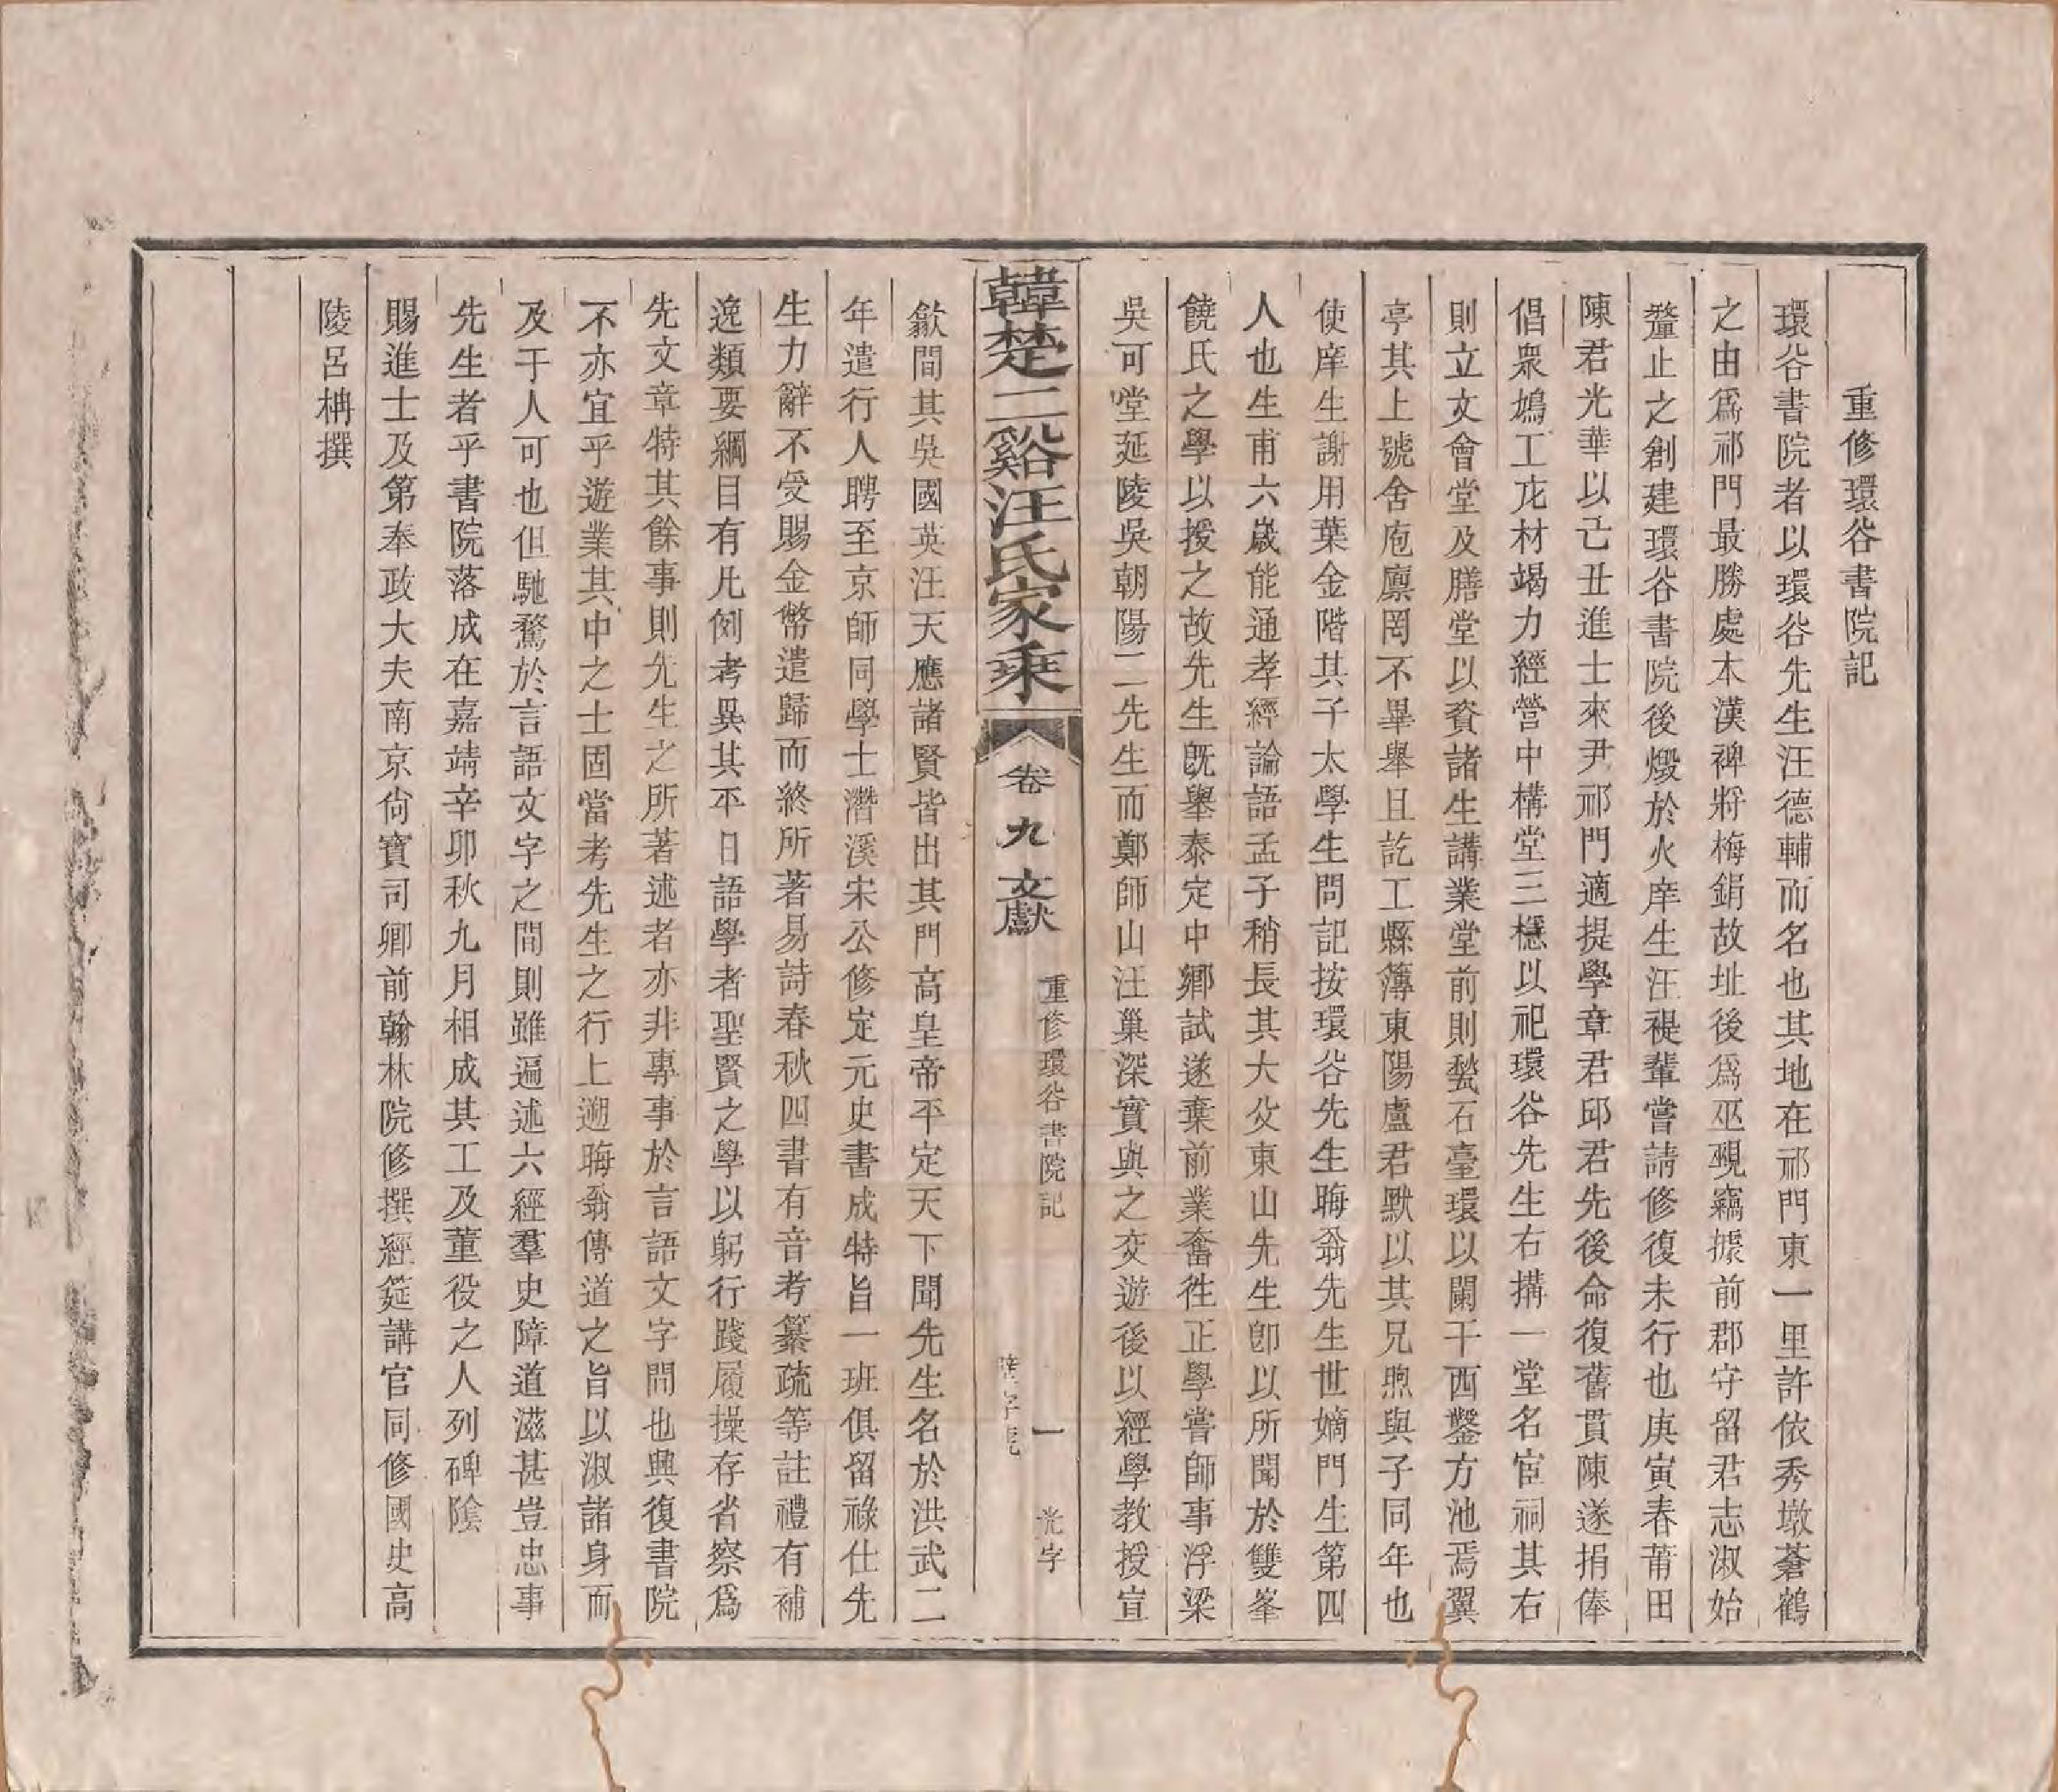 重修環谷書院記
環谷書院者以環谷先生汪德輔而名也其地在祁門東一里許依秀墩蒼鶴
之由爲祁門最勝處本漢裨將梅鋗故址後爲巫覡竊據前郡守留君志淑始
釐止之創建環谷書院後燬於火庠生汪禔輩嘗請修復未行也庚寅春莆田
陳君光華以乙丑進士來尹祁門適提學章君邱君先後命復舊貫陳遂捐俸
倡眾鳩工庀材竭力經營中構堂三穩以祀環谷先生右搆一堂名宦祠其右
則立文會堂及膳堂以資諸生講業堂前則甃石臺環以闌干西鑿方池焉翼
亭其上號舍庖廩罔不畢舉且訖工縣簿東陽盧君默以其兄煦與子同年也
使庠生謝用葉金階其子太學生問記按環谷先生晦翁先生世嫡門生第四
人也生甫六歲能通孝經論語孟子稍長其大父東山先生卽以所聞於雙峯
饒氏之學以授之故先生旣舉泰定中鄉試遂棄前業奮徃正學嘗師事浮梁
吳可堂延陵吳朝陽二先生而鄭師山汪巢深實與之交遊後以經學教授宣
韓楚二谿汪氏家乘
卷九 文獻
重修環谷書院記
一
光字
歙間其吳國英汪天應諸賢皆出其門高皇帝平定天下聞先生名於洪武二
年遣行人聘至京師同學士潛溪宋公修定元史書成特旨一班俱留祿仕先
生力辭不受賜金幣遣歸而終所著易詩春秋四書有音考纂疏等註禮有補
逸類要綱目有凡例考異其平日語學者聖賢之學以躬行踐履操存省察爲
先文章特其餘事則先生之所著述者亦非專事於言語文字間也興復書院
不亦宜乎遊業其中之士固當考先生之行上遡晦翁傳道之旨以淑諸身而
及于人可也但馳騖於言語文字之間則雖遍述六經羣史障道滋甚豈忠事
先生者乎書院落成在嘉靖辛卯秋九月相成其工及董役之人列碑陰
賜進士及第奉政大夫南京尚寶司卿前翰林院修撰經筵講官同修國史高
陵呂柟撰